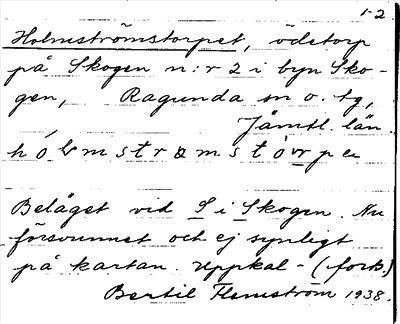 1-2.
Holmströmstorpet, ödetorp
på Skogen n:r 2 i byn Sko-
gen, Ragunda sn o. tg,
Jämtl. län
Beläget vid S i Skogen. Nu
försvunnet och ej synligt
på kartan. Uppkal- (forts.)
Bertil Flemström 1938.